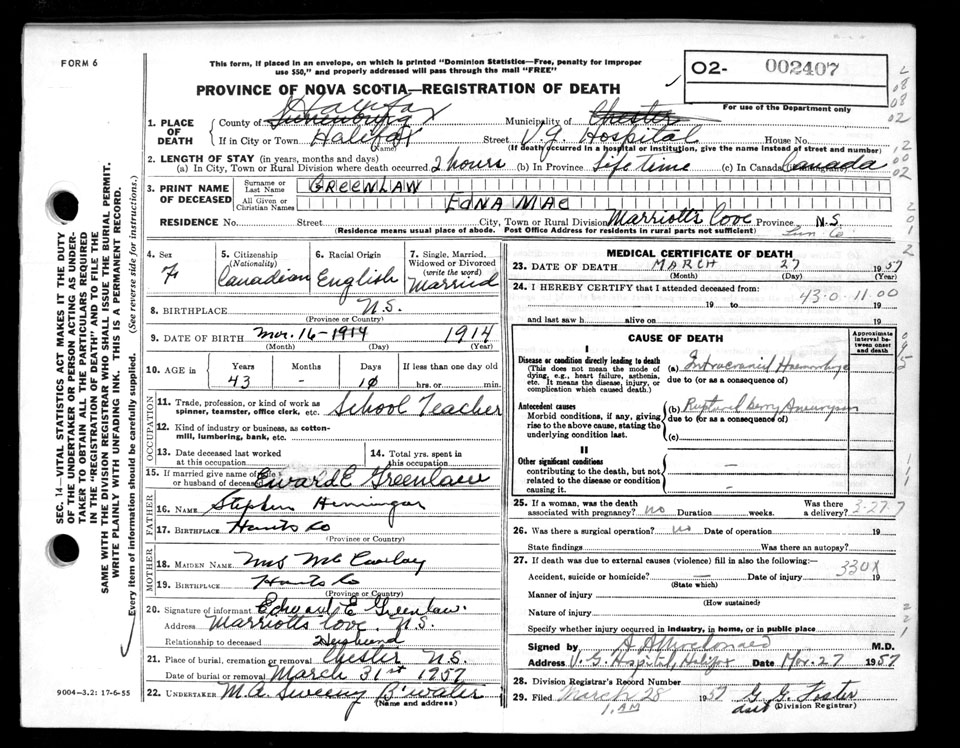 FORM 6
This form, if placed in an envelope, on which is printed "Dominion Statistics—Free, penalty for improper
use $50," and properly addressed will pass through the mail "FREE"
O2- 002407
For use of the Department only
PROVINCE OF NOVA SCOTIA—REGISTRATION OF DEATH
1. PLACE OF DEATH
Halifax
County of Lunenburg Municipality of Chester
If in City or Town Halifax Street V.G. Hospital House No.
(Name) (If death occurred in a hospital or institution, give the name instead of street and number)
2. LENGTH OF STAY (in years, months and days)
(a) In City, Town or Rural Division where death occurred 2 hours (b) In Province Life time (c) In Canada Canada
3. PRINT NAME OF DECEASED
Surname or Last Name GREENLAW
All Given or Christian Names EDNA MAE
RESIDENCE No. Street City, Town or Rural Division Marriotts Cove Province N.S.
(Residence means usual place of abode. Post Office Address for residents in rural parts not sufficient) Lun Co
4. Sex F
5. Citizenship (Nationality) Canadian
6. Racial Origin English
7. Single, Married, Widowed or Divorced (write the word) Married
8. BIRTHPLACE N.S.
(Province or Country)
9. DATE OF BIRTH Mar. 16-1914 1914
(Month) (Day) (Year)
10. AGE in Years 43 Months - Days 10 If less than one day old hrs. or min.
OCCUPATION
11. Trade, profession, or kind of work as spinner, teamster, office clerk, etc. School Teacher
12. Kind of industry or business, as cotton-mill, lumbering, bank, etc.
13. Date deceased last worked at this occupation
14. Total yrs. spent in this occupation
15. If married give name of wife or husband of deceased Edward E Greenlaw
FATHER
16. NAME Stephen
17. BIRTHPLACE Hants Co
(Province or Country)
MOTHER
18. MAIDEN NAME
19. BIRTHPLACE Hants Co
(Province or Country)
20. Signature of informant Edward E Greenlaw.
Address Marriotts Cove N.S.
Relationship to deceased Husband
21. Place of burial, cremation or removal Chester N.S.
Date of burial or removal March 31st 1957
22. UNDERTAKER M.A. Sweeny B'water
(Name and address)
MEDICAL CERTIFICATE OF DEATH
23. DATE OF DEATH MARCH 27 1957
(Month) (Day) (Year)
24. I HEREBY CERTIFY that I attended deceased from: 43-0 11.00
19 to 19
and last saw h alive on 19
CAUSE OF DEATH
Approximate interval between onset and death
I
Disease or condition directly leading to death (a) Intracranial Haemorrhage
(This does not mean the mode of dying, e.g., heart failure, asthenia, etc. It means the disease, injury, or complication which caused death.)
due to (or as a consequence of)
Antecedent causes (b) Ruptured berry Aneurysm
Morbid conditions, if any, giving rise to the above cause, stating the underlying condition last.
due to (or as a consequence of)
(c)
II
Other significant conditions
contributing to the death, but not related to the disease or condition causing it.
25. If a woman, was the death associated with pregnancy? no Duration weeks. Was there a delivery? 3-27-7
26. Was there a surgical operation? no Date of operation 19
State findings Was there an autopsy?
27. If death was due to external causes (violence) fill in also the following:— 330X
Accident, suicide or homicide? Date of injury 19
(State which)
Manner of injury
(How sustained)
Nature of injury
Specify whether injury occurred in industry, in home, or in public place
Signed by M.D.
Address V. G. Hospital, Halifax Date Mar. 27 1957
28. Division Registrar's Record Number
29. Filed March 28 1957 G. G. Foster
(Division Registrar)
SEC. 14—VITAL STATISTICS ACT MAKES IT THE DUTY
OF THE UNDERTAKER OR PERSON ACTING AS UNDER-
TAKER TO OBTAIN ALL THE PARTICULARS REQUIRED
IN THE "REGISTRATION OF DEATH" AND TO FILE THE
SAME WITH THE DIVISION REGISTRAR WHO SHALL ISSUE THE BURIAL PERMIT.
WRITE PLAINLY WITH UNFADING INK. THIS IS A PERMANENT RECORD.
Every item of information should be carefully supplied. (See reverse side for instructions.)
9004-3.2: 17-6-55